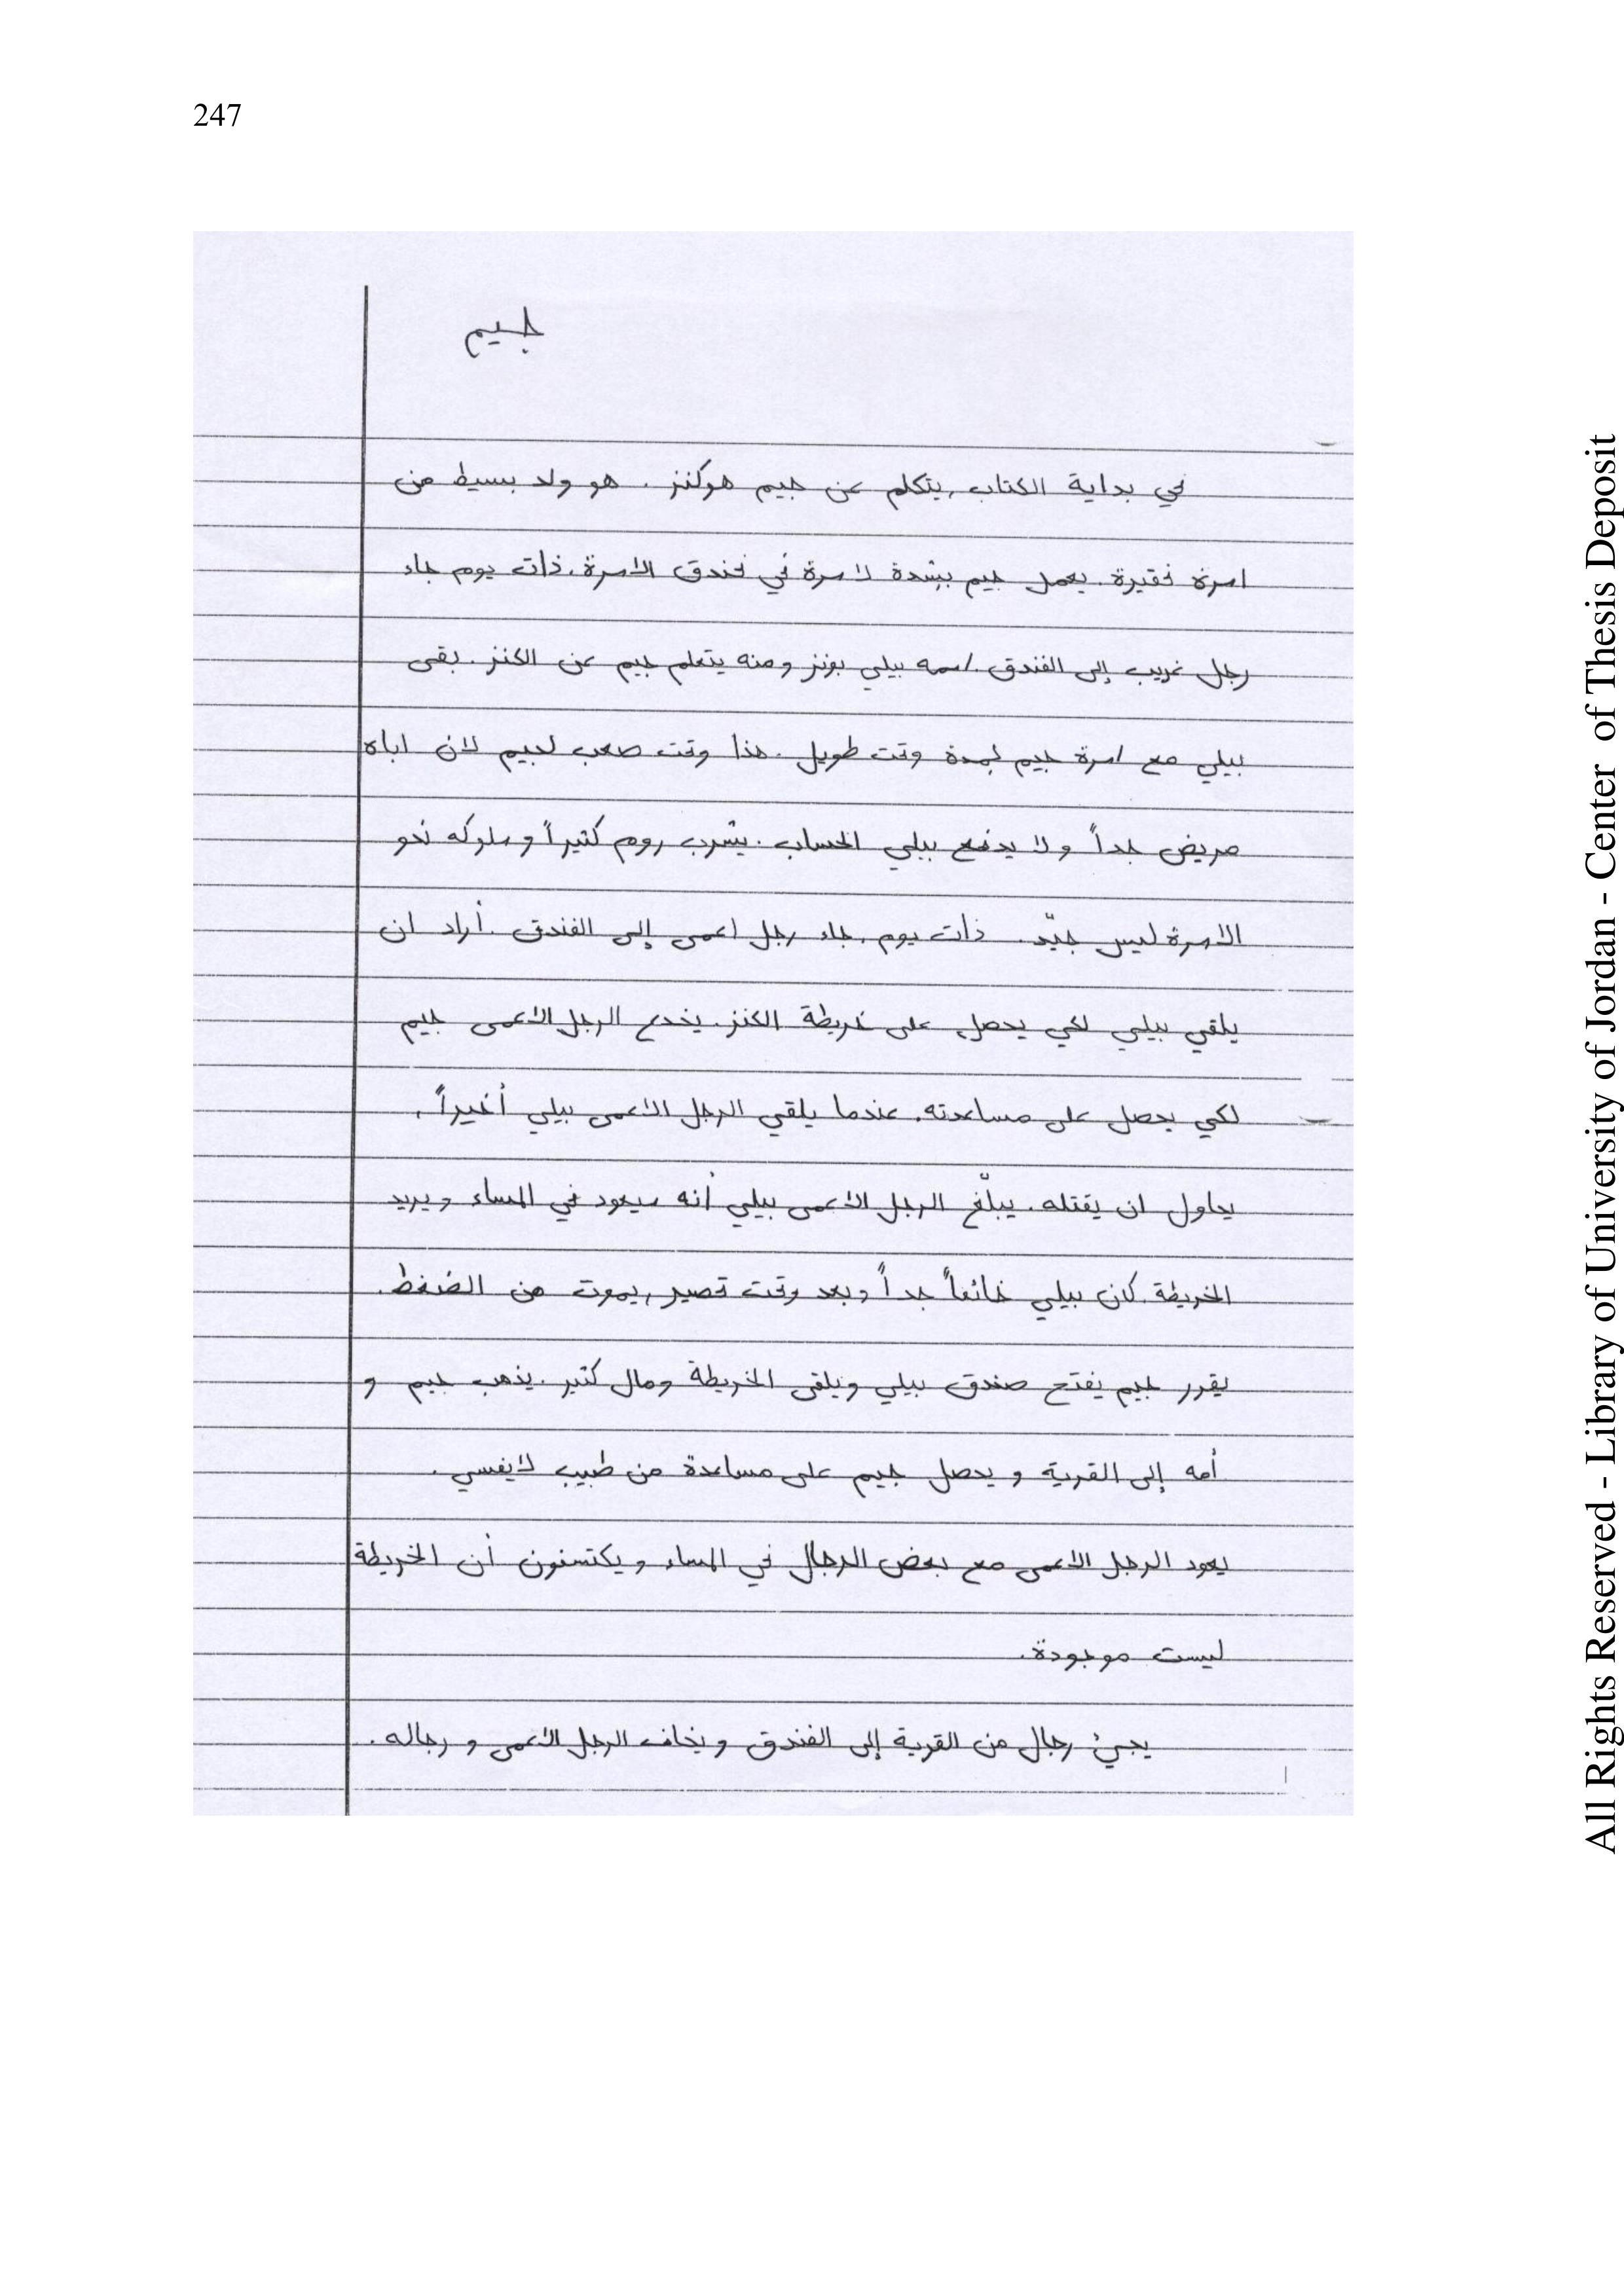 247
جيم
في بداية الكتاب، يتكلم عن جيم هوكنز. هو ولد بسيط من
اسرة فقيرة. يعمل جيم بشدة لاسرة في فندق الاسرة. ذات يوم جاء
رجل غريب إلى الفندق. اسمه بيلي بونز ومنه يتعلم جيم عن الكنز. بقى
بيلي مع اسرة جيم لمدة وقت طويل. هذا وقت صعب لجيم لان اباه
مريض جداً و لا يدفع بيلي الحساب. يشرب روم كثيراً و سلوكه نحو
الاسرة ليس جيّد. ذات يوم، جاء رجل اعمى إلى الفندق. أراد ان
يلقي بيلي لكي يحصل على خريطة الكنز. يخدع الرجل الأعمى جيم
لكي يحصل على مساعدته. عندما يلقي الرجل الأعمى بيلي أخيراً،
يحاول ان يقتله. يبلّغ الرجل الأعمى بيلي أنه سيعود في المساء و يريد
الخريطة. كان بيلي خائفاً جداً و بعد وقت قصير، يموت من الضغط.
يقرر جيم يفتح صندق بيلي ويلقى الخريطة ومال كثير. يذهب جيم و
أمه إلى القرية و يحصل جيم على مساعدة من طبيب لايفسي.
يعود الرجل الاعمى مع بعض الرجال في المساء و يكتسفون أن الخريطة
ليست موجودة.
يجيئ رجال من القرية إلى الفندق و يخاف الرجل الأعمى و رجاله.
All Rights Reserved - Library of University of Jordan - Center of Thesis Deposit